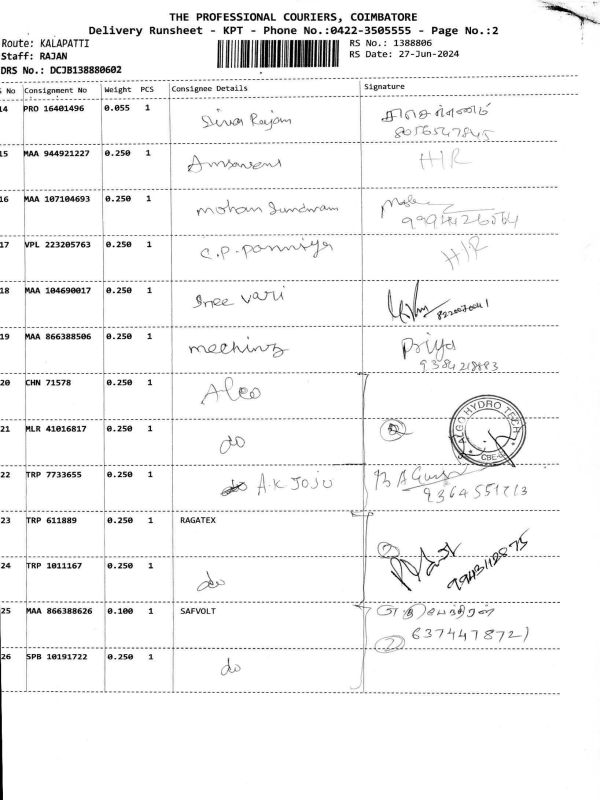 THE PROFESSIONAL COURIERS, COIMBATORE
Delivery Runsheet - KPT - Phone No.:0422-3505555 - Page No.:2
Route: KALAPATTI
RS No.: 1388806
Staff: RAJAN
RS Date: 27-Jun-2024
DRS No.: DCJB138880602
S No Consignment No Weight PCS Consignee Details Signature
14 PRO 16401496 0.055 1 Siva Rajam
8056547845
15 MAA 944921227 0.250 1 H/R
16 MAA 107104693 0.250 1 mohan Sundram
17 VPL 223205763 0.250 1 C.P. H/R
18 MAA 104690017 0.250 1 Sree vari
19 MAA 866388506 0.250 1 Priya
9384218893
20 CHN 71578 0.250 1
21 MLR 41016817 0.250 1 do
ALGO HYDRO TECH CBE
22 TRP 7733655 0.250 1 A.K JOJU
23 TRP 611889 0.250 1 RAGATEX
24 TRP 1011167 0.250 1 do
9943112875
25 MAA 866388626 0.100 1 SAFVOLT
6374478721
26 SPB 10191722 0.250 1 do
2